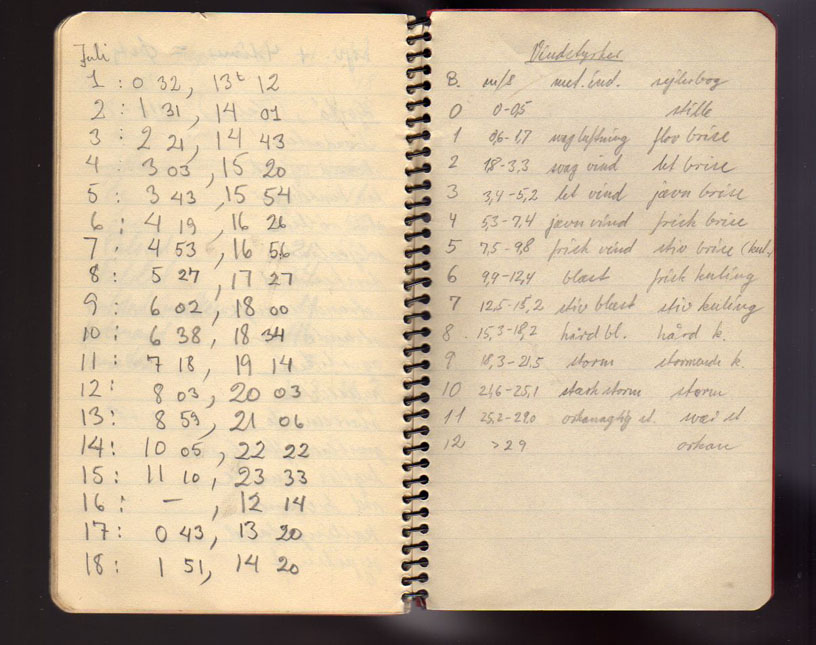 Juli
1 : 0 32, 13t 12
2 : 1 31, 14 01
3 : 2 21, 14 43
4 : 3 03, 15 20
5 : 3 43, 15 54
6 : 4 19, 16 26
7 : 4 53, 16 56
8 : 5 27, 17 27
9 : 6 02, 18 00
10 : 6 38, 18 34
11 : 7 18, 19 14
12 : 8 03, 20 03
13 : 8 59, 21 06
14 : 10 05, 22 22
15 : 11 10, 23 33
16 : – , 12 14
17 : 0 43, 13 20
18 : 1 51, 14 20
Vindstyrker
B. m/s met. ind. sejlersbog
0 0-0,5 stille
1 0,6-1,7 svag luftning flov brise
2 1,8-3,3 svag vind let brise
3 3,4-5,2 let vind jævn brise
4 5,3-7,4 jævn vind frisk brise
5 7,5-9,8 frisk vind stiv brise (kul.)
6 9,9-12,4 blæst frisk kuling
7 12,5-15,2 stiv blæst stiv kuling
8 15,3-18,2 hård bl. hård k.
9 18,3-21,5 storm stormende k.
10 21,6-25,1 stærk storm storm
11 25,2-29,0 orkanagtig st. svær st
12 >29 orkan